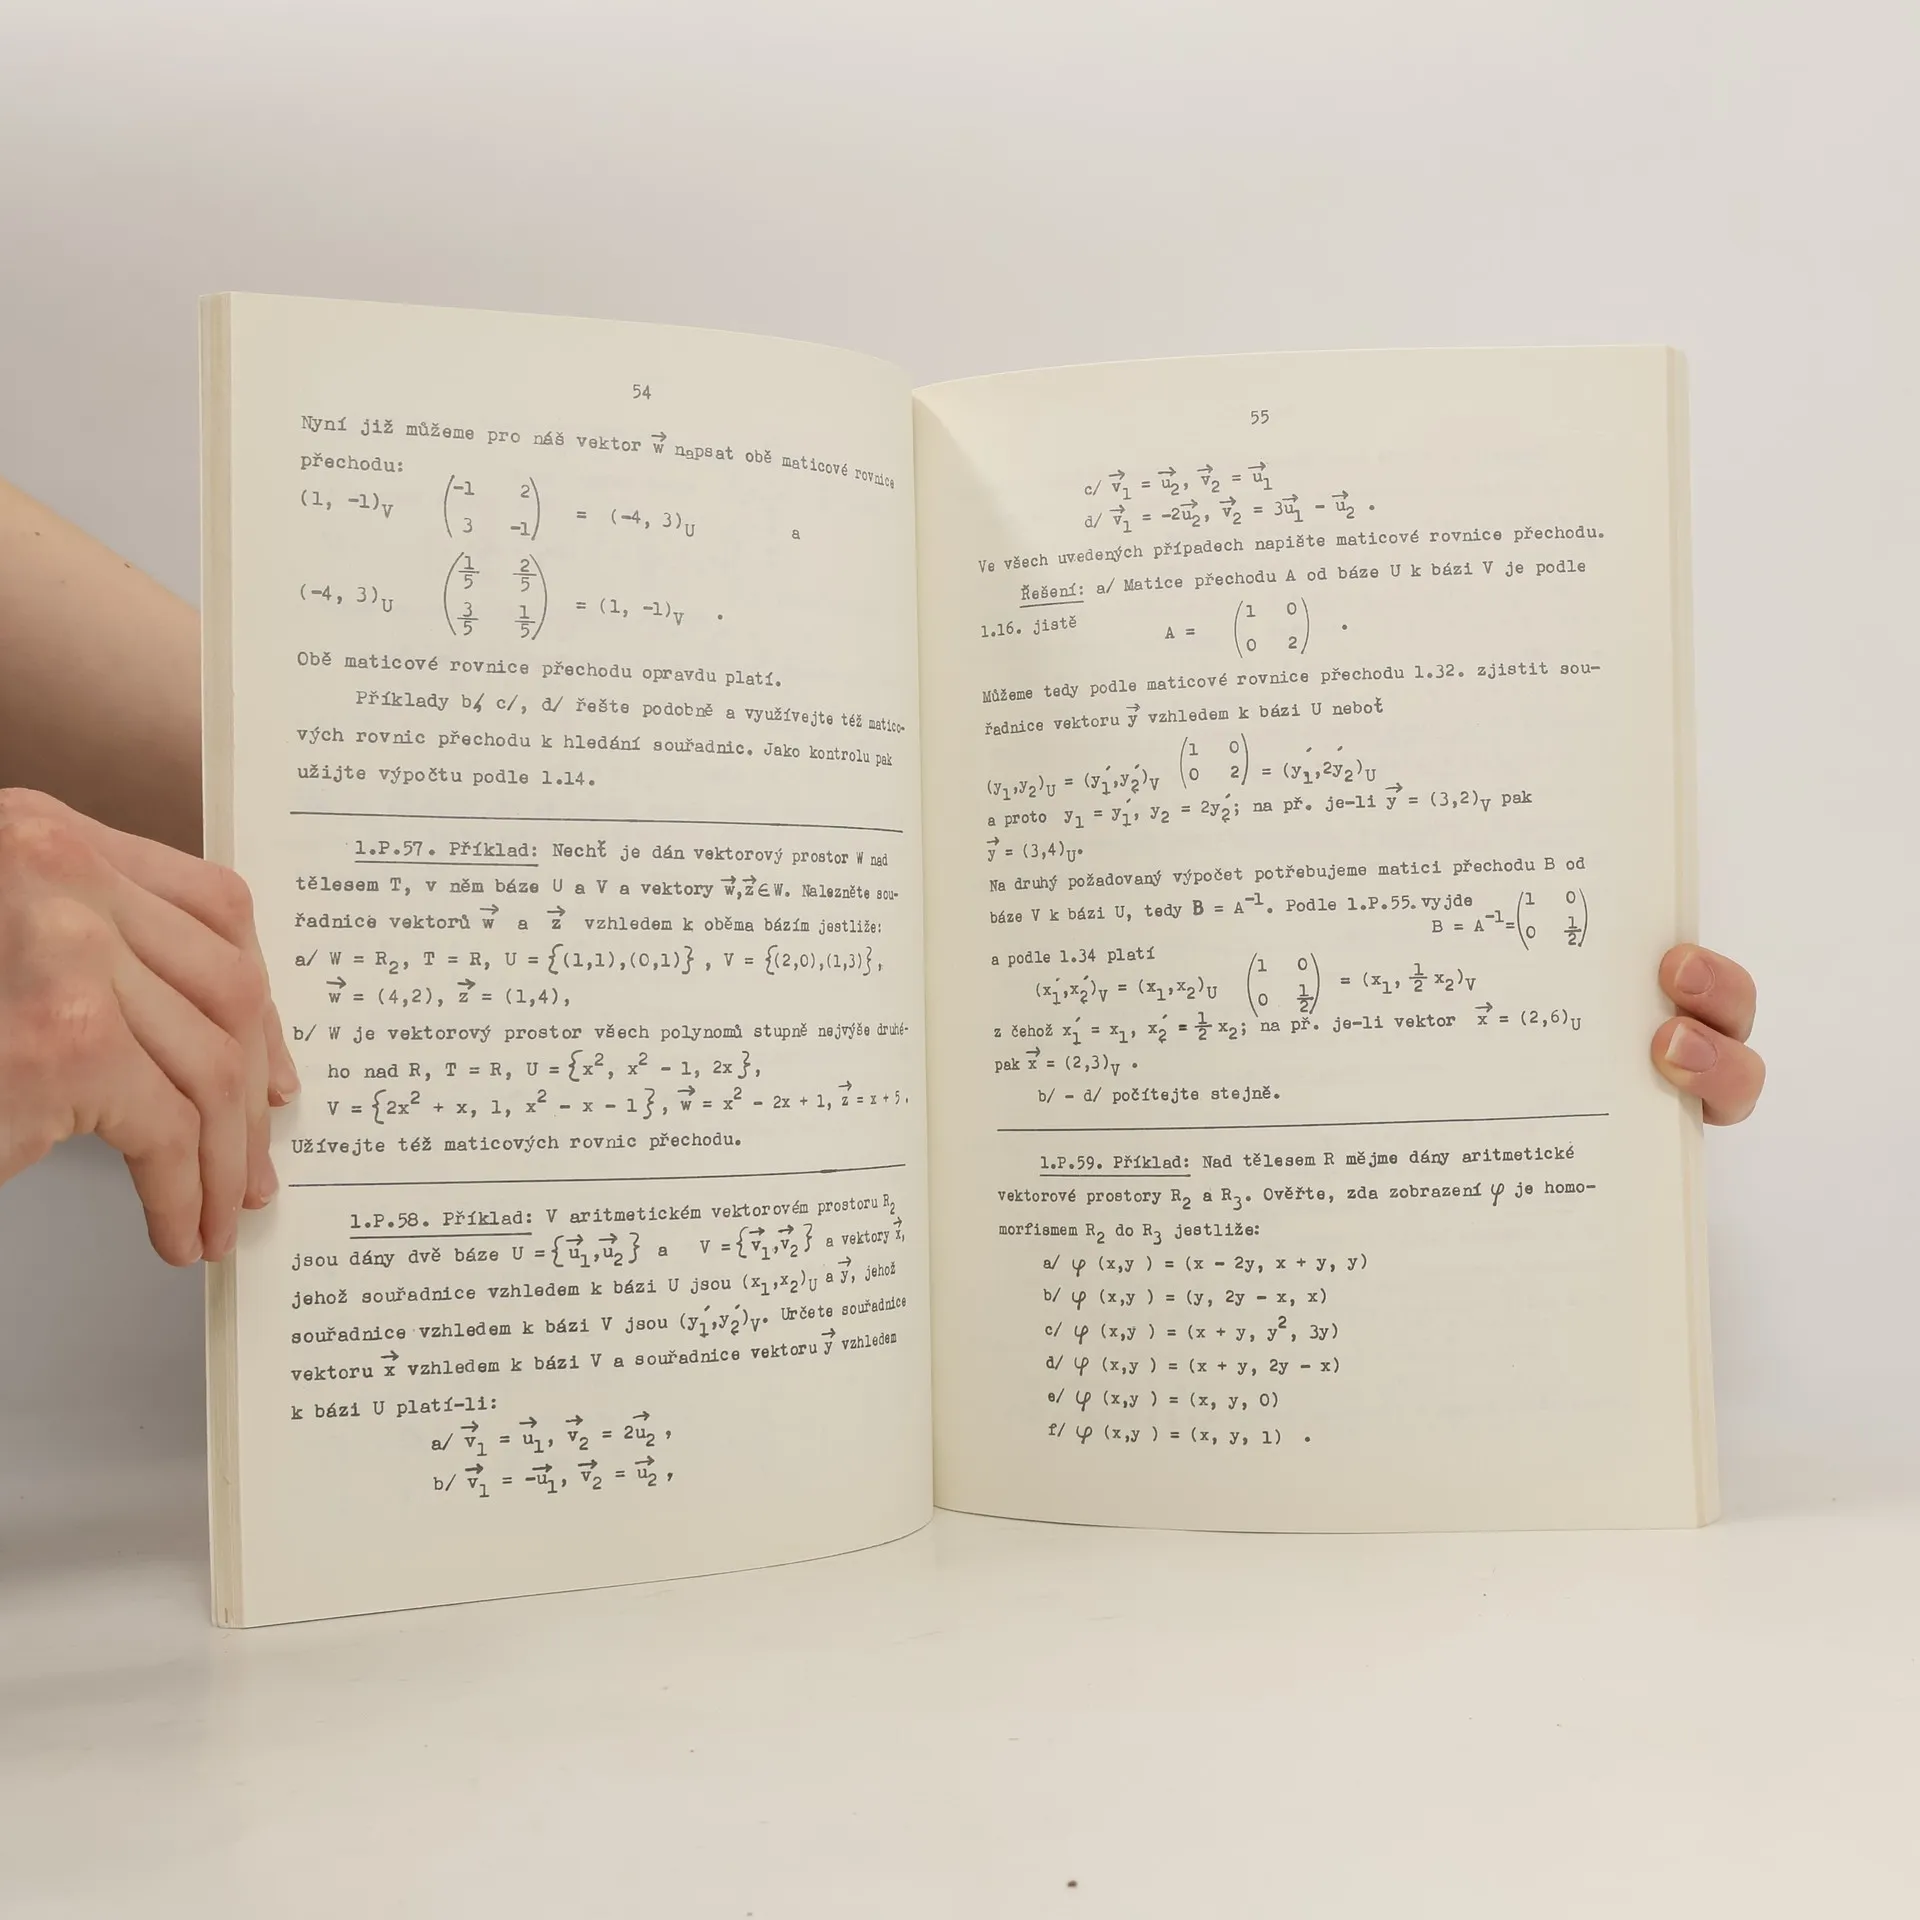 54
Nyní již můžeme pro náš vektor w⃗ napsat obě maticové rovnice
přechodu:
(1, -1)V (-1 2; 3 -1) = (-4, 3)U a
(-4, 3)U (1/5 2/5; 3/5 1/5) = (1, -1)V .
Obě maticové rovnice přechodu opravdu platí.
Příklady b/, c/, d/ řešte podobně a využívejte též matico-
vých rovnic přechodu k hledání souřadnic. Jako kontrolu pak
užijte výpočtu podle 1.14.
1.P.57. Příklad: Nechť je dán vektorový prostor W nad
tělesem T, v něm báze U a V a vektory w⃗,z⃗∈W. Nalezněte sou-
řadnice vektorů w⃗ a z⃗ vzhledem k oběma bázím jestliže:
a/ W = R₂, T = R, U = {(1,1),(0,1)} , V = {(2,0),(1,3)},
w⃗ = (4,2), z⃗ = (1,4),
b/ W je vektorový prostor všech polynomů stupně nejvýše druhé-
ho nad R, T = R, U = {x², x² - 1, 2x},
V = {2x² + x, 1, x² - x - 1}, w⃗ = x² - 2x + 1, z⃗ = x + 5.
Užívejte též maticových rovnic přechodu.
1.P.58. Příklad: V aritmetickém vektorovém prostoru R₂
jsou dány dvě báze U = {u⃗₁,u⃗₂} a V = {v⃗₁,v⃗₂} a vektory x⃗,
jehož souřadnice vzhledem k bázi U jsou (x₁,x₂)U a y⃗, jehož
souřadnice vzhledem k bázi V jsou (y₁́,y₂́)V. Určete souřadnice
vektoru x⃗ vzhledem k bázi V a souřadnice vektoru y⃗ vzhledem
k bázi U platí-li:
a/ v⃗₁ = u⃗₁, v⃗₂ = 2u⃗₂ ,
b/ v⃗₁ = -u⃗₁, v⃗₂ = u⃗₂ ,
55
c/ v⃗₁ = u⃗₂, v⃗₂ = u⃗₁
d/ v⃗₁ = -2u⃗₂, v⃗₂ = 3u⃗₁ - u⃗₂ .
Ve všech uvedených případech napište maticové rovnice přechodu.
Řešení: a/ Matice přechodu A od báze U k bázi V je podle
1.16. jistě A = (1 0; 0 2) .
Můžeme tedy podle maticové rovnice přechodu 1.32. zjistit sou-
řadnice vektoru y⃗ vzhledem k bázi U neboť
(y₁,y₂)U = (y₁́,y₂́)V (1 0; 0 2) = (y₁́,2y₂́)U
a proto y₁ = y₁́, y₂ = 2y₂́; na př. je-li y⃗ = (3,2)V pak
y⃗ = (3,4)U.
Na druhý požadovaný výpočet potřebujeme matici přechodu B od
báze V k bázi U, tedy B = A⁻¹. Podle 1.P.55. vyjde
B = A⁻¹= (1 0; 0 1/2)
a podle 1.34 platí
(x₁́,x₂́)V = (x₁,x₂)U (1 0; 0 1/2) = (x₁, 1/2 x₂)V
z čehož x₁́ = x₁, x₂́ = 1/2 x₂; na př. je-li vektor x⃗ = (2,6)U
pak x⃗ = (2,3)V .
b/ - d/ počítejte stejně.
1.P.59. Příklad: Nad tělesem R mějme dány aritmetické
vektorové prostory R₂ a R₃. Ověřte, zda zobrazení φ je homo-
morfismem R₂ do R₃ jestliže:
a/ φ (x,y ) = (x - 2y, x + y, y)
b/ φ (x,y ) = (y, 2y - x, x)
c/ φ (x,y ) = (x + y, y², 3y)
d/ φ (x,y ) = (x + y, 2y - x)
e/ φ (x,y ) = (x, y, 0)
f/ φ (x,y ) = (x, y, 1) .